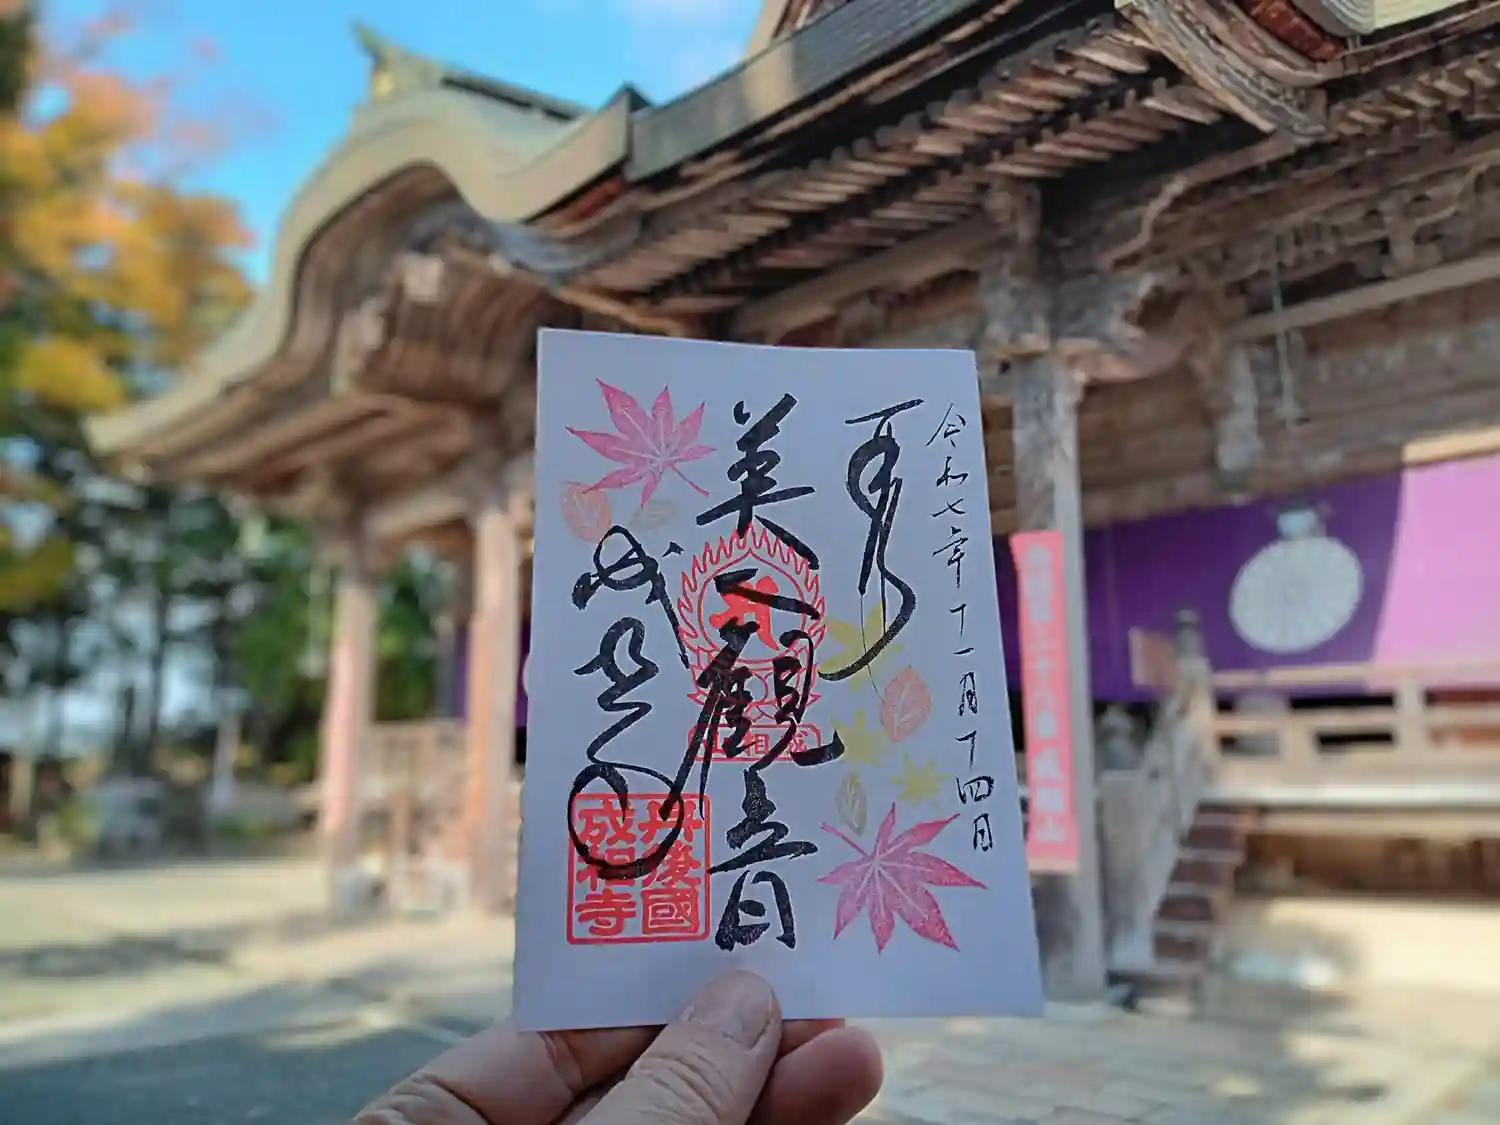 令和七年十一月十四日
奉拝
美人観音
成相寺
成相山
丹後國
成相寺